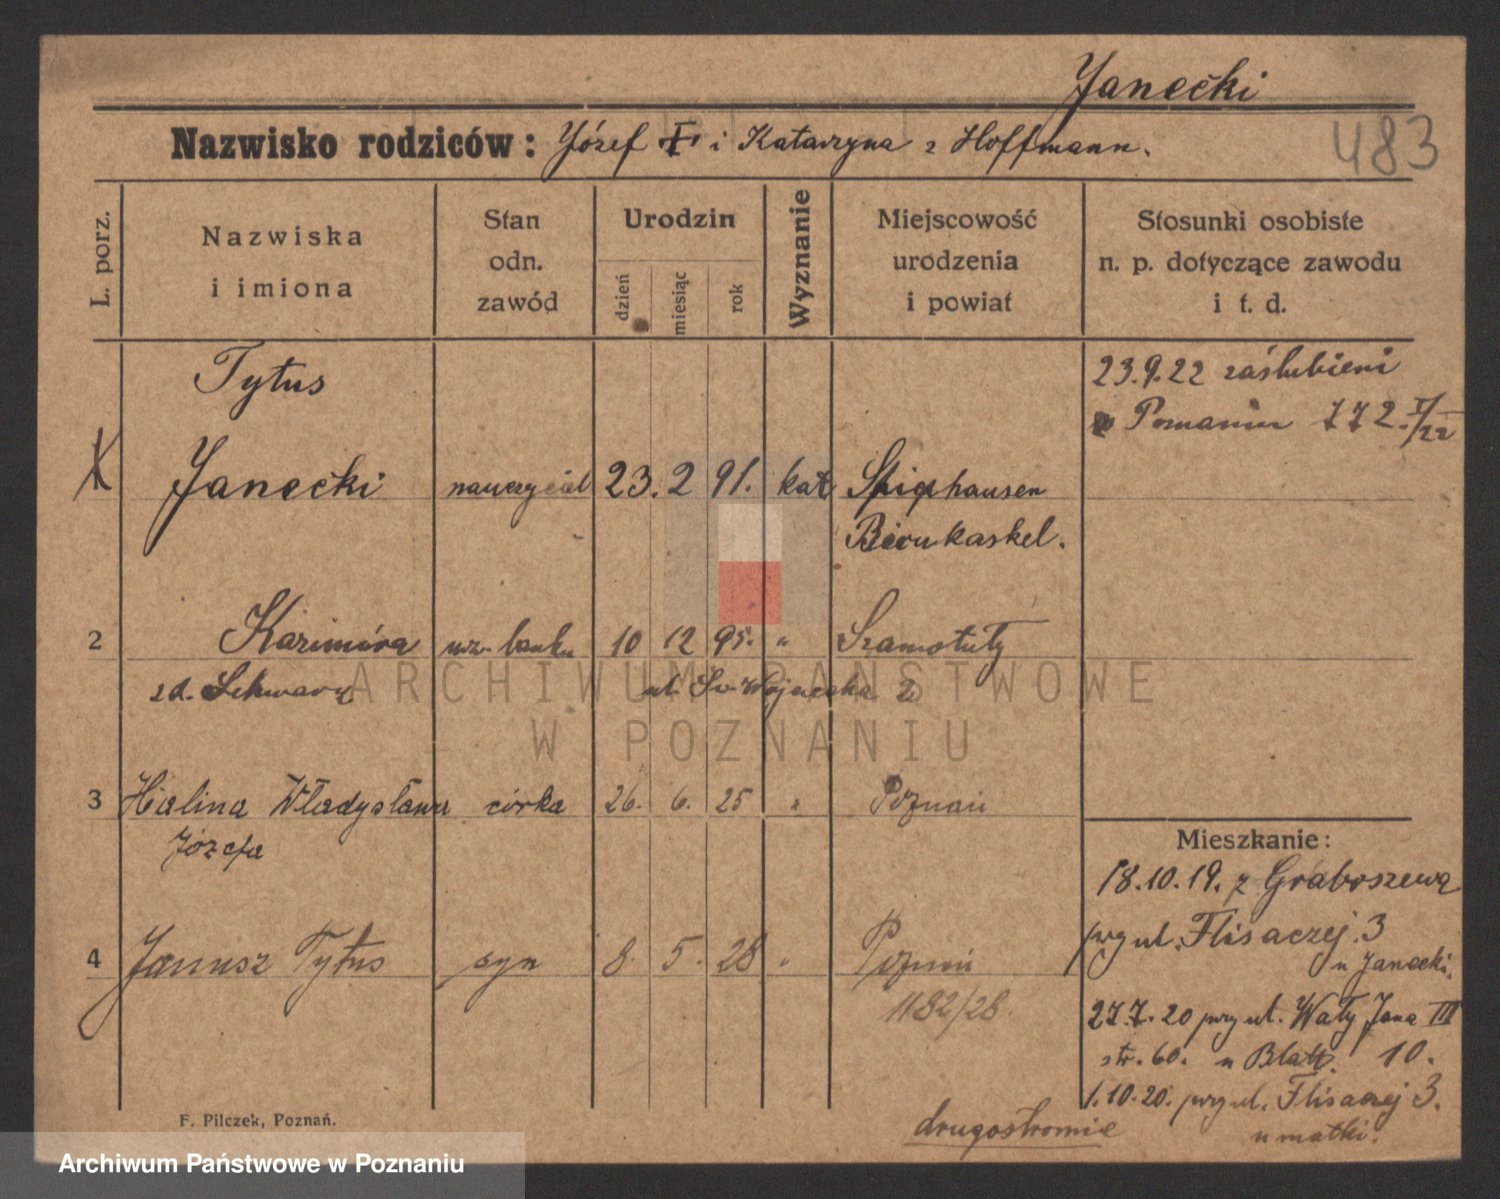 Janecki
483
Nazwisko rodziców: Józef i Katarzyna z Hoffmann.
L. porz.
Nazwiska
i imiona
Stan
odn.
zawód
Urodzin
dzień
miesiąc
rok
Wyznanie
Miejscowość
urodzenia
i powiat
Stosunki osobiste
n. p. dotyczące zawodu
i t. d.
Tytus
Janecki nauczyciel 23. 2 91. kat
23.9.22 zaślubieni
w Poznaniu 772. I/22
2 Kazimiéra urz. banku 10 12 95. " Szamotuły
zd. ul. Św. Wojciecha 2
3 Halina Władysława córka 26. 6. 25 " Poznań
Józefa
4 Janusz Tytus syn 8. 5. 28 " Poznań
1182/28.
Mieszkanie:
18.10.19. z Graboszewa
przy ul. Flisaczej 3
u Janecki.
27.7.20 przy ul. Wały Jana III
str. 60. u 10.
1.10.20. przy ul. Flisaczej 3.
u matki.
drugostronnie
F. Pilczek, Poznań.
ARCHIWUM PAŃSTWOWE
W POZNANIU
Archiwum Państwowe w Poznaniu